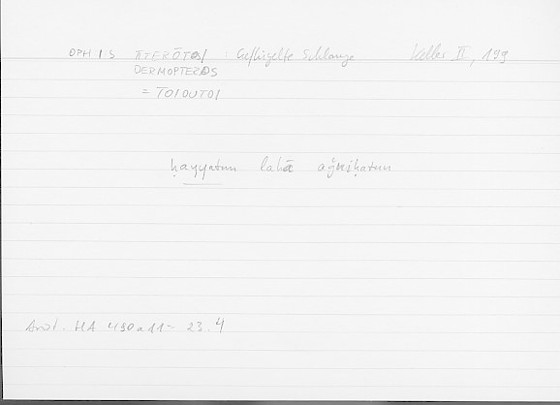 OPHIS PTERŌTOS : Geflügelte Schlange Keller II, 199
DERMOPTEROS
= TOIOUTOI
ḥayyatun lahā aǧniḥatun
Arist. HA 490a11 = 23.4